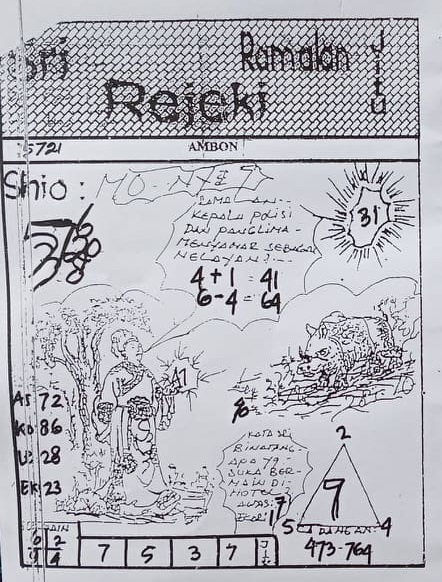 Sri
Ramalan
Jitu
Rejeki
5721
AMBON
Shio : MO-NY
RAMALAN--
KEPALA POLISI
DAN PANGLIMA-
MENYAMAR SEBAGAI
NELAYAN ?---
4+1 = 41
6-4 = 64
31
AS 72
KO 86
28
EK 23
KATA SRI
BINATANG-
APA YG
SUKA BER-
MAIN DI-
HOTEL
AWAS:
EKOR: 1
2
9
5
4
CADANGAN:
473-764
6 2
4
7 5 3 7